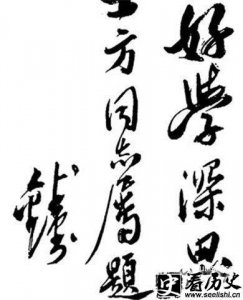 好學深思
方同志屬題
看历史
www.seelishi.cn